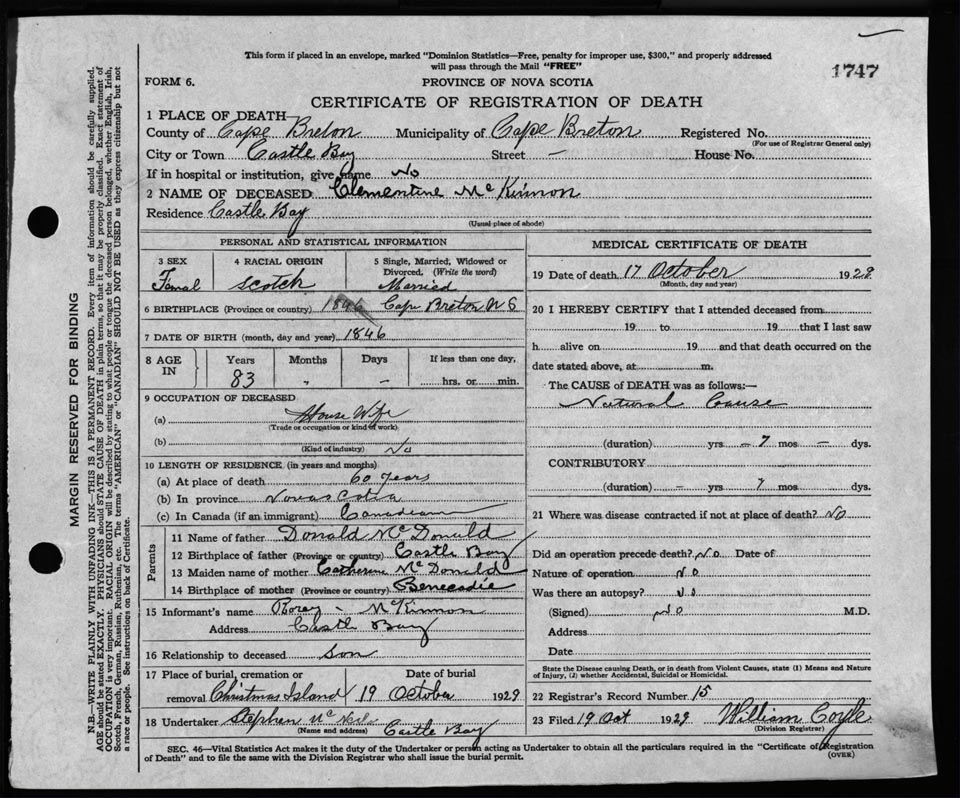 This form if placed in an envelope, marked "Dominion Statistics—Free, penalty for improper use, $300," and properly addressed
will pass through the Mail "FREE"
1747
FORM 6.
PROVINCE OF NOVA SCOTIA
CERTIFICATE OF REGISTRATION OF DEATH
1 PLACE OF DEATH—
County of Cape Breton Municipality of Cape Breton Registered No.
(For use of Registrar General only)
City or Town Castle Bay Street — House No.
If in hospital or institution, give name No
2 NAME OF DECEASED Clementine McKinnon
Residence Castle Bay
(Usual place of abode)
PERSONAL AND STATISTICAL INFORMATION
3 SEX 4 RACIAL ORIGIN 5 Single, Married, Widowed or
Divorced, (Write the word)
Femal Scotch Married
6 BIRTHPLACE (Province or country) 1846 Cape Breton N S
7 DATE OF BIRTH (month, day and year) 1846
8 AGE IN Years Months Days If less than one day,
83 " — hrs. or min.
9 OCCUPATION OF DECEASED
(a) House Wife
(Trade or occupation or kind of work)
(b) No
(Kind of industry)
10 LENGTH OF RESIDENCE (in years and months)
(a) At place of death 60 Years
(b) In province Nova Scotia
(c) In Canada (if an immigrant) Canadian
Parents
11 Name of father Donald McDonald
12 Birthplace of father (Province or country) Castle Bay
13 Maiden name of mother Catherine McDonald
14 Birthplace of mother (Province or country) Benecadie
15 Informant's name Rorey McKinnon
Address Castle Bay
16 Relationship to deceased Son
17 Place of burial, cremation or Date of burial
removal Christmas Island 19 October 1929
18 Undertaker Stephen McNeil
(Name and address) Castle Bay
MEDICAL CERTIFICATE OF DEATH
19 Date of death 17 October 1929
(Month, day and year)
20 I HEREBY CERTIFY that I attended deceased from
19 to 19 that I last saw
h alive on 19 and that death occurred on the
date stated above, at m.
The CAUSE of DEATH was as follows:—
Natural Cause
(duration) yrs — 7 mos — dys.
CONTRIBUTORY
(duration) — yrs 7 mos dys.
21 Where was disease contracted if not at place of death? No
Did an operation precede death? No Date of
Nature of operation No
Was there an autopsy? No
(Signed) No M.D.
Address
Date
State the Disease causing Death, or in death from Violent Causes, state (1) Means and Nature
of Injury, (2) whether Accidental, Suicidal or Homicidal.
22 Registrar's Record Number 15
23 Filed 19 Oct 1929 William Coyle
(Division Registrar)
SEC. 46—Vital Statistics Act makes it the duty of the Undertaker or person acting as Undertaker to obtain all the particulars required in the "Certificate of Registration
of Death" and to file the same with the Division Registrar who shall issue the burial permit.
(OVER)
MARGIN RESERVED FOR BINDING
N.B.—WRITE PLAINLY WITH UNFADING INK—THIS IS A PERMANENT RECORD. Every item of information should be carefully supplied.
AGE should be stated EXACTLY. PHYSICIANS should STATE CAUSE OF DEATH in plain terms, so that it may be properly classified. Exact statement of
OCCUPATION is very important. RACIAL ORIGIN will be described by stating to what people or tongue the deceased person belonged, whether English, Irish,
Scotch, French, German, Russian, Ruthenian, etc. The terms "AMERICAN" or "CANADIAN" SHOULD NOT BE USED as they express citizenship but not
a race or people. See instructions on back of Certificate.